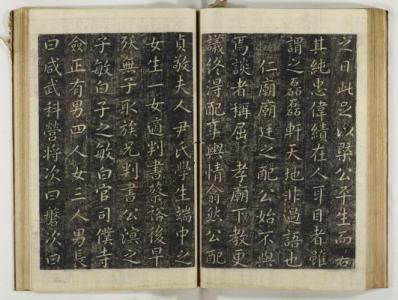 之日此足以槩公平生而右
其純忠偉績在人耳目者雖
謂之磊磊軒天地非過語也
仁廟廟廷之配公始不與
焉談者稱屈 孝廟下教更
議終得配事輿情翕然公配
貞敬夫人尹氏學生端中之
女生一女適判書蔡裕後早
歿無子取族兄判書公溟之
子敏白子之敏白官司僕寺
僉正有男四人女三人男長
曰咸武科營將次曰磐次曰